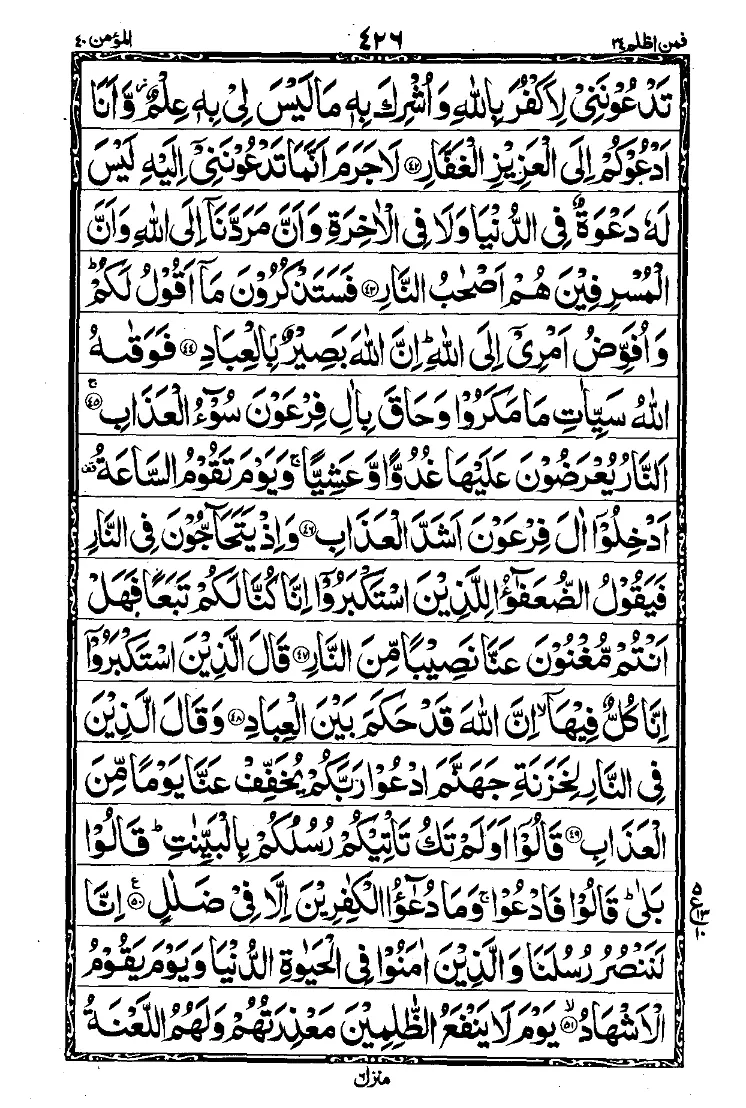 المؤمن ٤٠ ٤٢٦ فمن اظلم ٢٤
تَدْعُوْنَنِیْ لِاَكْفُرَ بِاللّٰهِ وَ اُشْرِكَ بِهٖ مَا لَیْسَ لِیْ بِهٖ عِلْمٌ٘ وَّ اَنَا
اَدْعُوْكُمْ اِلَى الْعَزِیْزِ الْغَفَّارِ ﴿۴۲﴾ لَا جَرَمَ اَنَّمَا تَدْعُوْنَنِیْۤ اِلَیْهِ لَیْسَ
لَهٗ دَعْوَةٌ فِی الدُّنْیَا وَ لَا فِی الْاٰخِرَةِ وَ اَنَّ مَرَدَّنَاۤ اِلَى اللّٰهِ وَ اَنَّ
الْمُسْرِفِیْنَ هُمْ اَصْحٰبُ النَّارِ ﴿۴۳﴾ فَسَتَذْكُرُوْنَ مَاۤ اَقُوْلُ لَكُمْ ؕ
وَ اُفَوِّضُ اَمْرِیْۤ اِلَى اللّٰهِ ؕ اِنَّ اللّٰهَ بَصِیْرٌۢ بِالْعِبَادِ ﴿۴۴﴾ فَوَقٰىهُ
اللّٰهُ سَیِّاٰتِ مَا مَكَرُوْا وَ حَاقَ بِاٰلِ فِرْعَوْنَ سُوْٓءُ الْعَذَابِ ﴿۴۵﴾ ج
اَلنَّارُ یُعْرَضُوْنَ عَلَیْهَا غُدُوًّا وَّ عَشِیًّا ۚ وَ یَوْمَ تَقُوْمُ السَّاعَةُ قف
اَدْخِلُوْۤا اٰلَ فِرْعَوْنَ اَشَدَّ الْعَذَابِ ﴿۴۶﴾ وَ اِذْ یَتَحَآجُّوْنَ فِی النَّارِ
فَیَقُوْلُ الضُّعَفٰٓؤُا لِلَّذِیْنَ اسْتَكْبَرُوْۤا اِنَّا كُنَّا لَكُمْ تَبَعًا فَهَلْ
اَنْتُمْ مُّغْنُوْنَ عَنَّا نَصِیْبًا مِّنَ النَّارِ ﴿۴۷﴾ قَالَ الَّذِیْنَ اسْتَكْبَرُوْۤا
اِنَّا كُلٌّ فِیْهَاۤ ۙ اِنَّ اللّٰهَ قَدْ حَكَمَ بَیْنَ الْعِبَادِ ﴿۴۸﴾ وَ قَالَ الَّذِیْنَ
فِی النَّارِ لِخَزَنَةِ جَهَنَّمَ ادْعُوْا رَبَّكُمْ یُخَفِّفْ عَنَّا یَوْمًا مِّنَ
الْعَذَابِ ﴿۴۹﴾ قَالُوْۤا اَوَ لَمْ تَكُ تَاْتِیْكُمْ رُسُلُكُمْ بِالْبَیِّنٰتِ ؕ قَالُوْا
بَلٰى ؕ قَالُوْا فَادْعُوْا ۚ وَ مَا دُعٰٓؤُا الْكٰفِرِیْنَ اِلَّا فِیْ ضَلٰلٍ ﴿۵۰﴾ ع اِنَّا
لَنَنْصُرُ رُسُلَنَا وَ الَّذِیْنَ اٰمَنُوْا فِی الْحَیٰوةِ الدُّنْیَا وَ یَوْمَ یَقُوْمُ
الْاَشْهَادُ ﴿۵۱﴾ ۙ یَوْمَ لَا یَنْفَعُ الظّٰلِمِیْنَ مَعْذِرَتُهُمْ وَ لَهُمُ اللَّعْنَةُ
٥
ع ١٣
١٠
منزل ٦